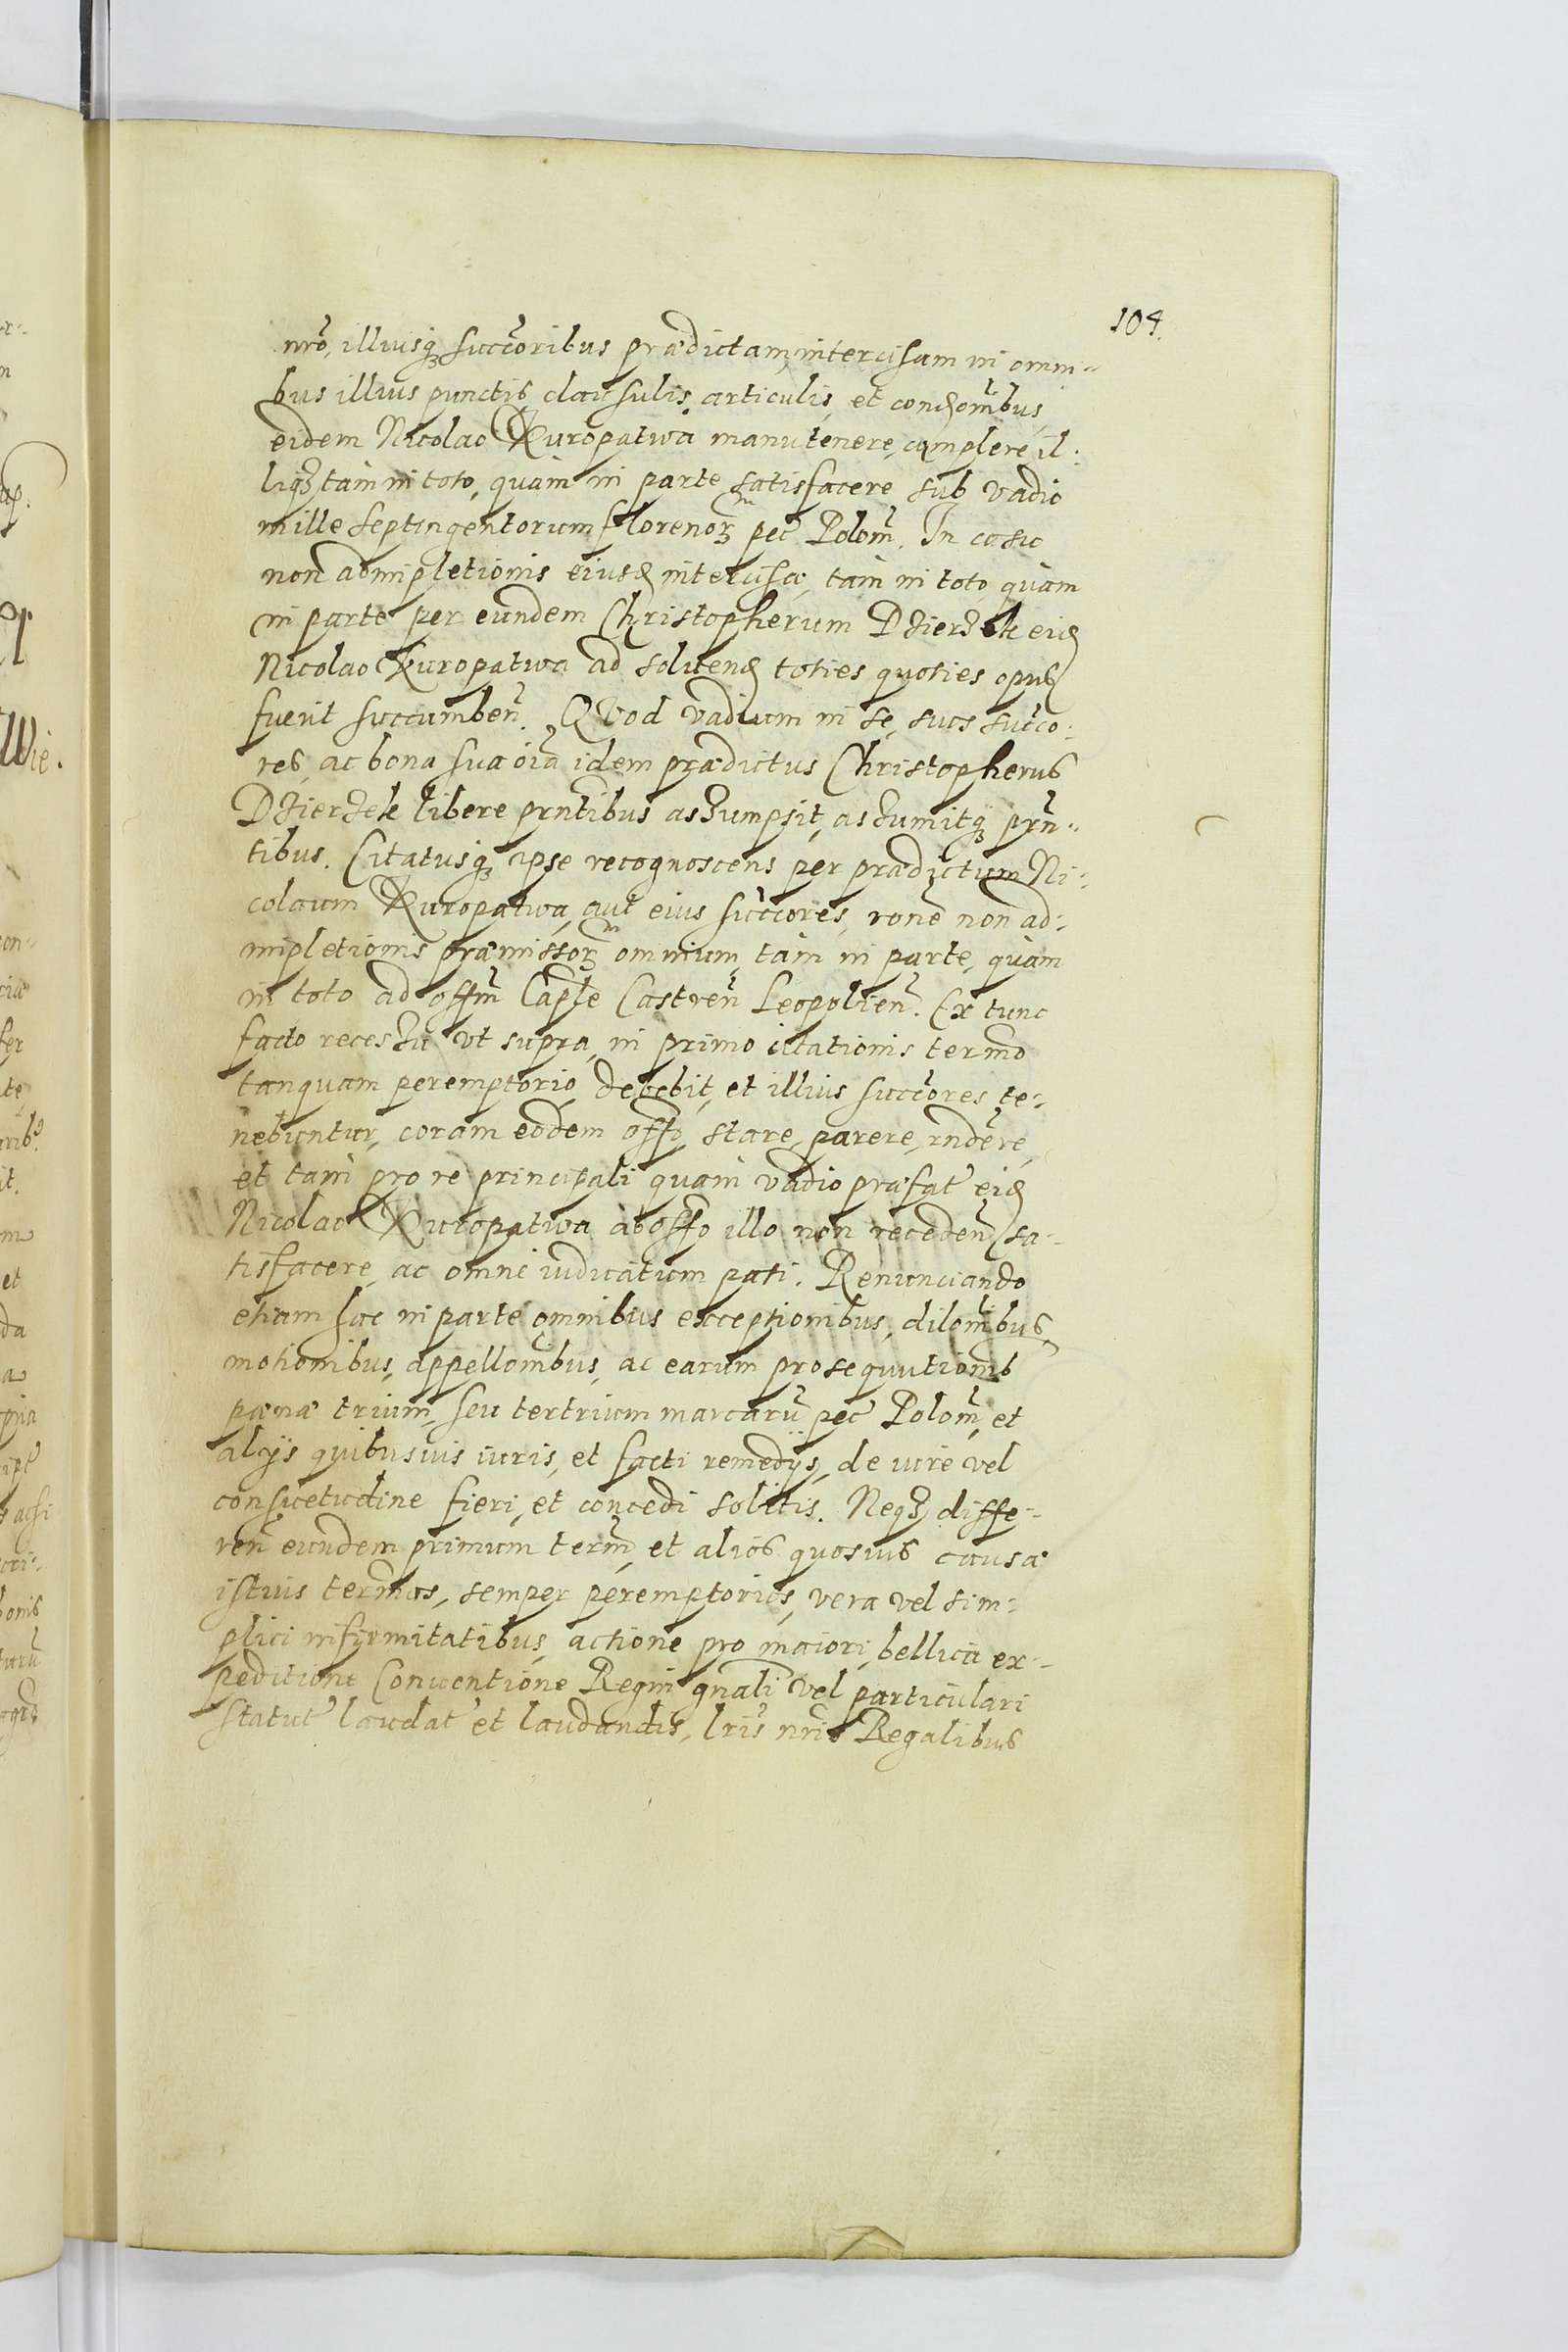 104.
nr̃o, illiusq₃ succ̃oribus prædictam, intercisam in omni-
bus illius punctis clausulis, articulis, et condõnibus,
eidem Nicolao Kuropatwa manutenere, complere il-
liq₃ tam in toto, quàm in parte satisfacere sub vadio
mille septingentorum florenoꝝ pec̃ Poloñ. In casu
non adimpletionis eiusd intercisæ, tam in toto quàm
in parte per eundem Christopherum Dzierzek eid
Nicolao Kuropatwa ad soluend toties quoties opus
fuerit succumbeñ. QVod vadium in se, suos succo-
res, ac bona sua oĩa idem prædictus Christopherus
Dzierzek libere pr̃ntibus assumpsit, assumitq₃ pr̃n-
tibus. Citatusq₃ ipse recognoscens per prædictum Ni-
colaum Kuropatwa, aut eius succ̃ores, rõne non ad-
impletionis præmissoꝝ omnium, tam in parte, quàm
in toto ad offm̃ Cap̃le Castreñ Leopolieñ. Ex tunc
facto recessu vt supra, in primo citationis term̃o
tanquam peremptorio, debebit, et illius succ̃ores te-
nebuntur, coram eodem off̃o, stare, parere, r̃ndere,
et tam pro re principali quàm vadio præfat̃ eid
Nicolao Kuropatwa ab off̃o illo non recedeñ sa-
tisfacere, ac omne iudicatum pati. Renunciando
etiam hac in parte omnibus exceptionibus, dilõnibus,
motionibus, appellõnibus, ac earum prosequutionib
pœnæ trium, seu tertrium marcarũ pec̃ Poloñ, et
alijs quibusuis iuris, et facti remedijs, de iure vel
consuetudine fieri, et concedi solitis. Neq₃ diffe-
reñ eundem primum term̃, et alios quosuis causæ
istius term̃os, semper peremptorios, vera vel sim-
plici infirmitatibus, actione pro maiori, bellica ex-
peditione Conuentione Regni gñali vel particulari
statut̃ laudat̃ et laudandis, lr̃is nr̃is Regalibus